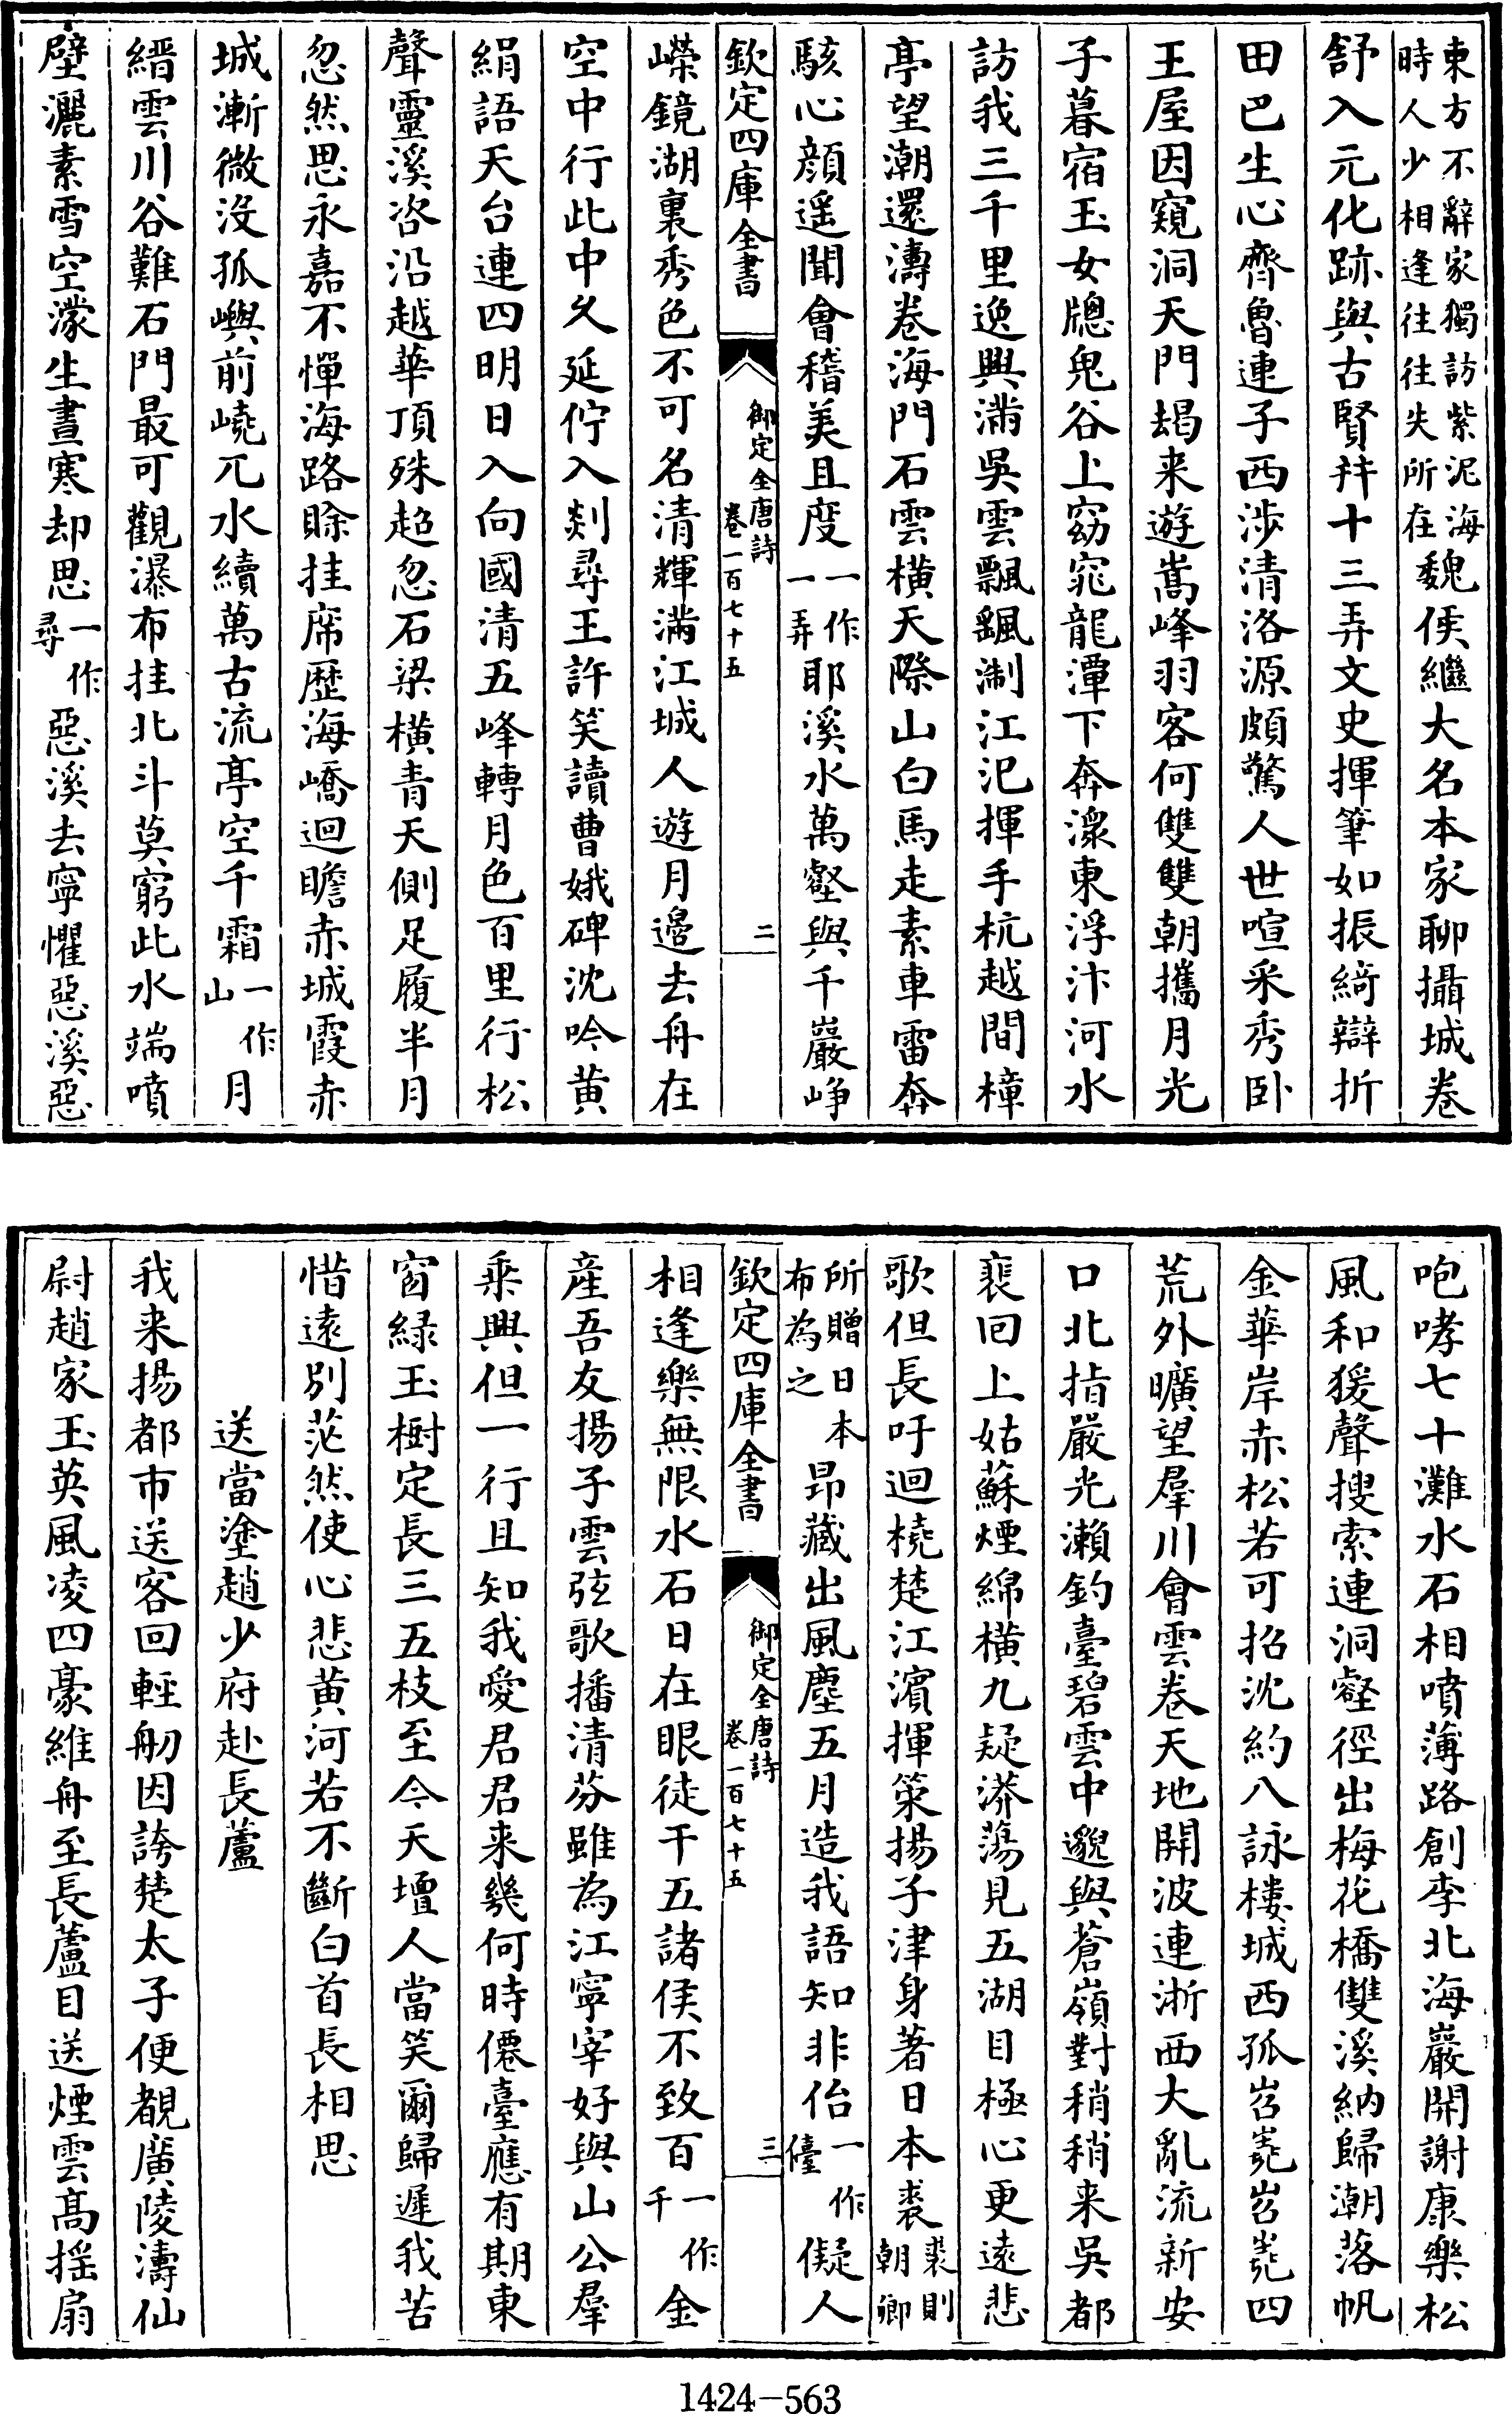 東方不辭家獨訪紫泥海
時人少相逢往往失所在魏侯繼大名本家聊攝城卷
舒入元化跡與古賢幷十三弄文史揮筆如振綺辯折
田巴生心齊魯連子西涉清洛源頗驚人世喧采秀臥
王屋因窺洞天門朅来遊嵩峰羽客何雙雙朝攜月光
子暮宿玉女牕鬼谷上窈窕龍潭下奔潨東浮汴河水
訪我三千里逸興滿吳雲飄颻淛江汜揮手杭越間樟
亭望潮還濤卷海門石雲横天際山白馬走素車雷奔
駭心顔遥聞會稽美且度一作一弄耶溪水萬壑與千巖崢
欽定四庫全書 御定全唐詩 卷一百七十五 二
嶸鏡湖裏秀色不可名清輝滿江城人遊月邉去舟在
空中行此中久延佇入剡尋王許笑讀曹娥碑沈吟黄
絹語天台連四明日入向國清五峰轉月色百里行松
聲靈溪咨沿越華頂殊超忽石梁橫青天側足履半月
忽然思永嘉不憚海路賒挂席歷海嶠迴瞻赤城霞赤
城漸微沒孤嶼前嶢兀水續萬古流亭空千霜一作山月
縉雲川谷難石門最可觀瀑布挂北斗莫窮此水端噴
壁灑素雪空濛生晝寒却思一作尋惡溪去寧懼惡溪惡
咆哮七十灘水石相噴薄路創李北海巖開謝康樂松
風和猨聲搜索連洞壑徑出梅花橋雙溪納歸潮落帆
金華岸赤松若可招沈約八詠樓城西孤岧嶤岧嶤四
荒外曠望羣川會雲卷天地開波連浙西大亂流新安
口北指嚴光瀨釣臺碧雲中邈與蒼嶺對稍稍来吳都
裵回上姑蘇煙綿橫九疑漭蕩見五湖目極心更遠悲
歌但長吁迴橈楚江濱揮策揚子津身著日本裘裘則朝卿
所贈日本布為之昂藏出風塵五月造我語知非佁一作儓儗人
欽定四庫全書 御定全唐詩 卷一百七十五 三
相逢樂無限水石日在眼徒干五諸侯不致百一作千金
産吾友揚子雲弦歌播清芬雖為江寧宰好與山公羣
乘興但一行且知我愛君君来幾何時僊臺應有期東
窗綠玉樹定長三五枝至今天壇人當笑爾歸遲我苦
惜遠別茫然使心悲黄河若不斷白首長相思
送當塗趙少府赴長蘆
我来揚都市送客回輕舠因誇楚太子便覩廣陵濤仙
尉趙家玉英風凌四豪維舟至長蘆目送煙雲髙揺扇
1424－563